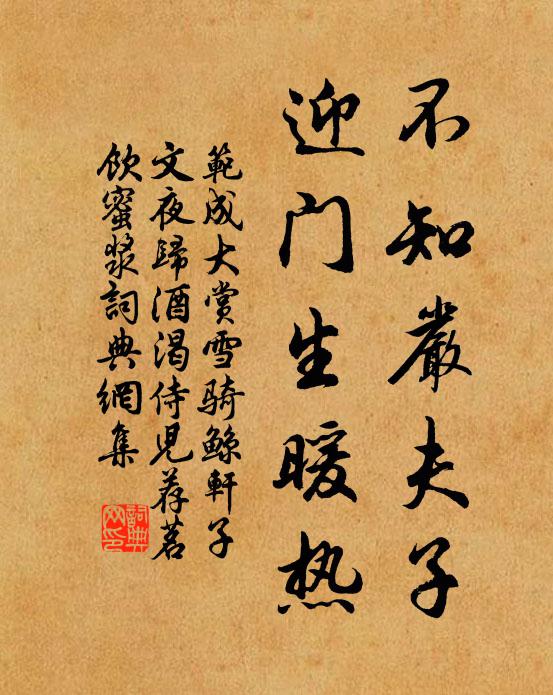 不知嚴夫子
迎门生暖热
範成大賞雪骑鲸軒子
文夜歸酒渴侍児荐茗
飲蜜漿詞典網集
詞典网印